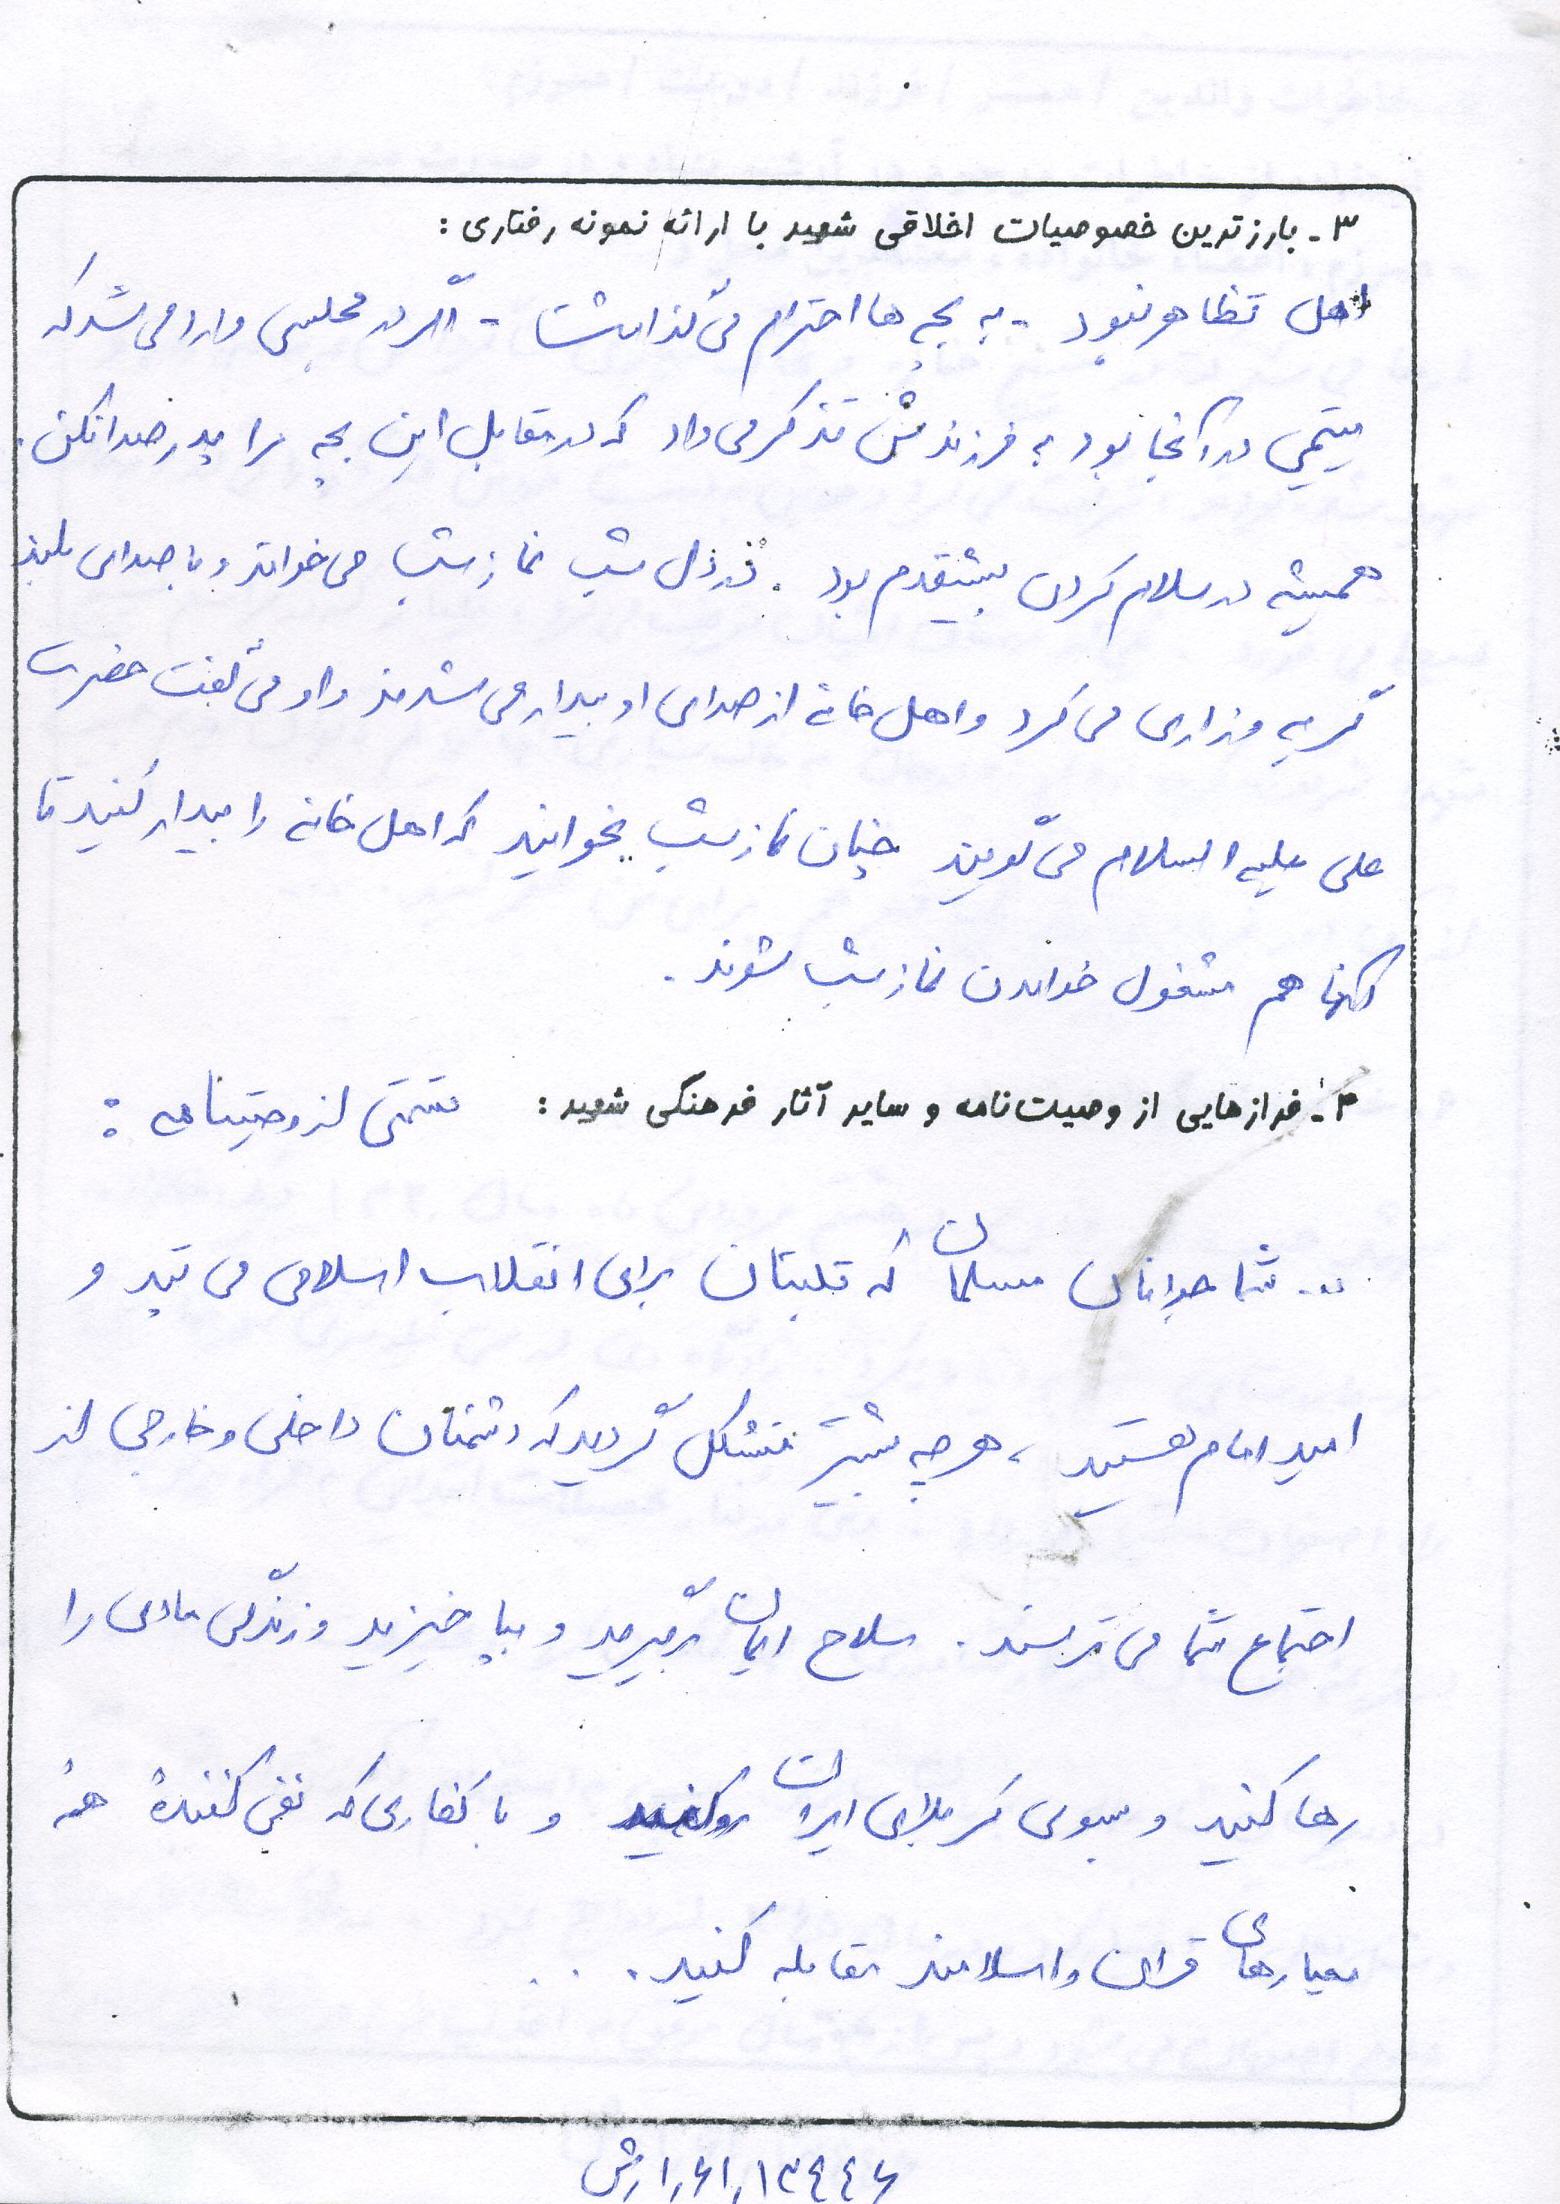 ۳- بارزترین خصوصیات اخلاقی شهید با ارائه نمونه رفتاری:
اهل تظاهر نبود - به بچه ها احترام می گذاشت - اگر در مجلسی وارد می شد که
یتیمی در آنجا بود به فرزندش تذکر می داد که در مقابل این بچه مرا پدر صدا نکن.
همیشه در سلام کردن پیشقدم بود. در دل شب نماز شب می خواند و با صدای بلند
گریه و زاری می کرد و اهل خانه از صدای او بیدار می شدند و او می گفت حضرت
علی علیه السلام می گویند چنان نماز شب بخوانید که اهل خانه را بیدار کنید تا
آنها هم مشغول خواندن نماز شب شوند.
۴- فرازهایی از وصیت‌نامه و سایر آثار فرهنگی شهید: قسمتی از وصیتنامه:
... شما جوانان مسلمان که قلبتان برای انقلاب اسلامی می تپد و
امید امام هستید، هر چه بیشتر متشکل گردید که دشمنان داخلی و خارجی از
اجتماع شما می ترسند. سلاح ایمان برگیرید و بپا خیزید و زندگی مادی را
رها کنید و بسوی کربلای ایران رو کنید و با کفاری که نفی کنندهٔ همهٔ
معیارهای قرآن و اسلامند مقابله کنید...